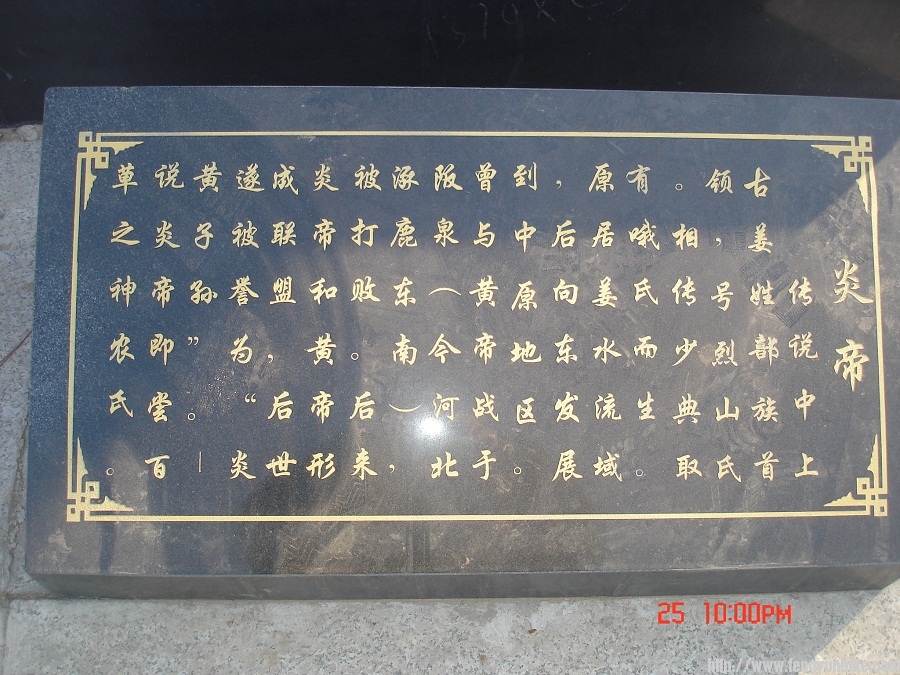 炎帝
传说中上
古姜姓部族首
领，号烈山氏
。相传少典取
有哦氏而生。
原居姜水流域
，后向东发展
到中原地区。
曾与黄帝战于
阪泉（今河北
涿鹿东南），
被打败。后来
炎帝和黄帝形
成联盟，后世
遂被誉为“炎
黄子孙”。一
说炎帝即尝百
草之神农氏。
25 10:00PM